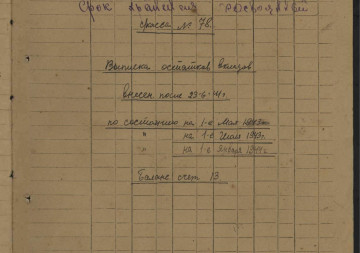 Срок хранения
сросса № 78.
Выписка остатков
внесен после 23-6-41г.
по состоянию на 1-е Мая
" на 1-е Июля 1943г.
" на 1-е Января 1944г.
Баланс счет 13